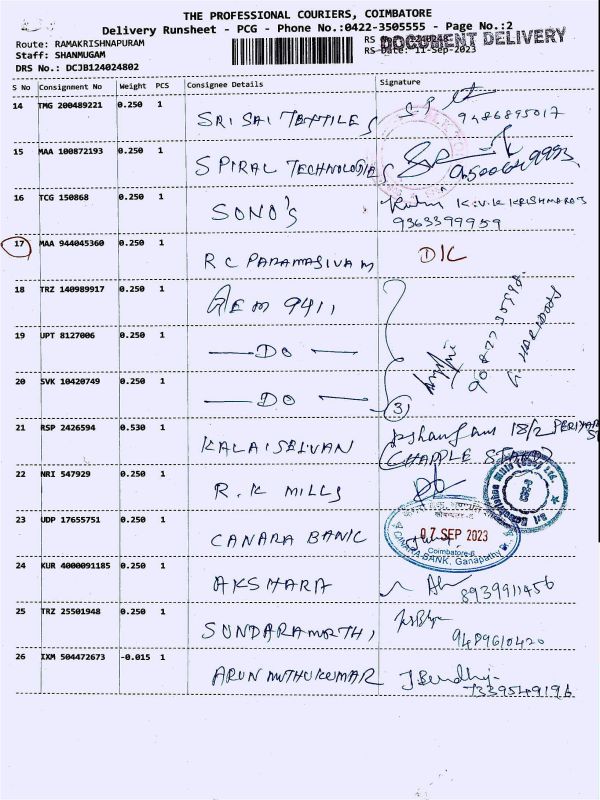 THE PROFESSIONAL COURIERS, COIMBATORE
Delivery Runsheet - PCG - Phone No.:0422-3505555 - Page No.:2
Route: RAMAKRISHNAPURAM
Staff: SHANMUGAM
DRS No.: DCJB124024802
DOCUMENT DELIVERY
RS Date: 11-Sep-2023
S No Consignment No Weight PCS Consignee Details Signature
14 TMG 200489221 0.250 1 SRI SAI TEXTILES 9486895017
15 MAA 100872193 0.250 1 SPIRAL TECHNOLOGIES
16 TCG 150868 0.250 1 SONO'S
9363399959
17 MAA 944045360 0.250 1 R C PARAMASIVAM
18 TRZ 140989917 0.250 1 GEM 9411
19 UPT 8127006 0.250 1 — DO —
20 SVK 10420749 0.250 1 — DO — 3
21 RSP 2426594 0.530 1 KALAISELVAN 18/2 PERIYAR
22 NRI 547929 0.250 1 R. K MILLS
23 UDP 17655751 0.250 1 CANARA BANK
07 SEP 2023
Coimbatore-6
CANARA BANK, Ganapathy
24 KUR 4000091185 0.250 1 AKSHARA 8939911456
25 TRZ 25501948 0.250 1 SUNDARAMOORTHI 9489610420
26 IXM 504472673 -0.015 1 ARUN MUTHUKUMAR